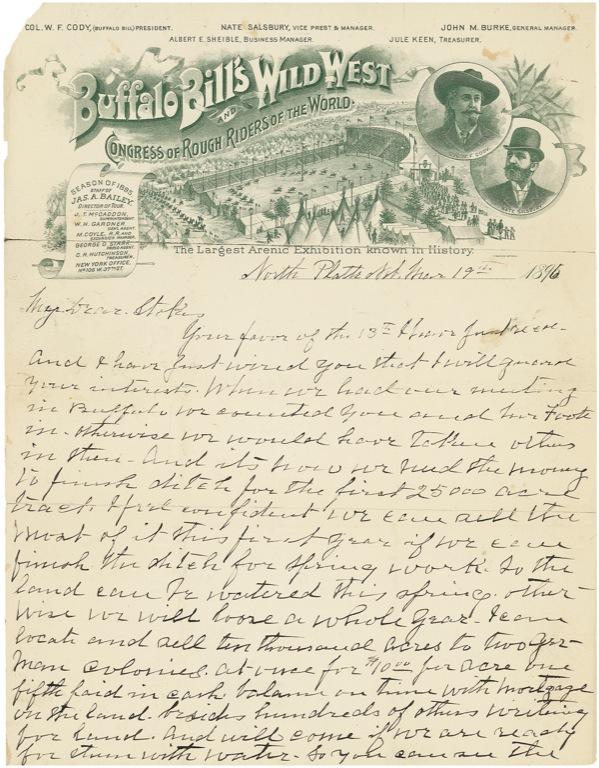 COL. W. F. CODY, (BUFFALO BILL) PRESIDENT.
NATE SALSBURY, VICE PREST & MANAGER.
JOHN M. BURKE, GENERAL MANAGER.
ALBERT E. SHEIBLE, BUSINESS MANAGER.
JULE KEEN, TREASURER.
Buffalo Bill's Wild West
AND
CONGRESS OF ROUGH RIDERS OF THE WORLD.
COL. W. F. CODY.
NATE SALSBURY
SEASON OF 1895
STAFF OF
JAS. A. BAILEY,
DIRECTOR OF TOUR.
J. T. McCADDON,
W. H. GARDNER,
GENL. AGENT.
M. COYLE, R. R. AND
EXCURSION MANAGER.
GEORGE O. STARR,
PRESS AGENT.
C. R. HUTCHINSON,
TREASURER.
NEW YORK OFFICE,
No 106 W. 37TH ST.
The Largest Arenic Exhibition known in History.
North Platte Neb. Mar 19th 1896
My Dear Stokes
Your favor of the 13th I have just recd-
And I have just wired you that I will guard
Your interests. When we had our meeting
in Buffalo we counted you and Mr Foote
in- otherwise we would have taken others
in then- And its now we need the money
to finish ditch for the first 25000 acre
tract. I feel confident we can sell the
most of it this first year if we can
finish the ditch for spring work. So the
land can be watered this spring. other-
wise we will loose a whole year. I can
locate and sell ten thousand acres to two Ger-
man colonies. at once for $10.00 per acre one
fifth paid in cash balance on time with mortgage
on the land. besides hundreds of others writing
for land. And will come if we are ready
for them with water. So you can see the